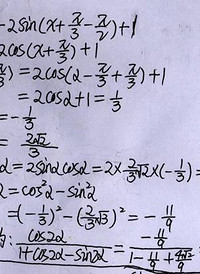 -2sin(x+π/3-π/2)+1
2cos(x+π/3)+1
π/3)=2cos(α-π/3+π/3)+1
=2cosα+1=1/3
=-1/3
=2√2/3
α=2sinαcosα=2×2/3√2×(-1/3)=
α=cos²α-sin²α
=(-1/3)²-(2/3√3)²=-11/9
: cos2α/1+cos2α-sin2α=-11/9/1-11/9+4√2/9